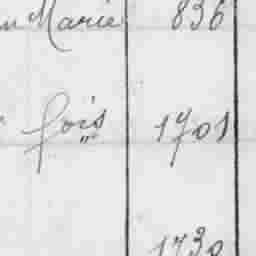 Marie 836
fois 1701
1730